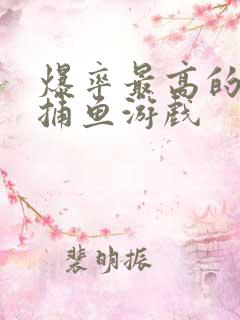 爆率最高的
捕鱼游戏
裴明振